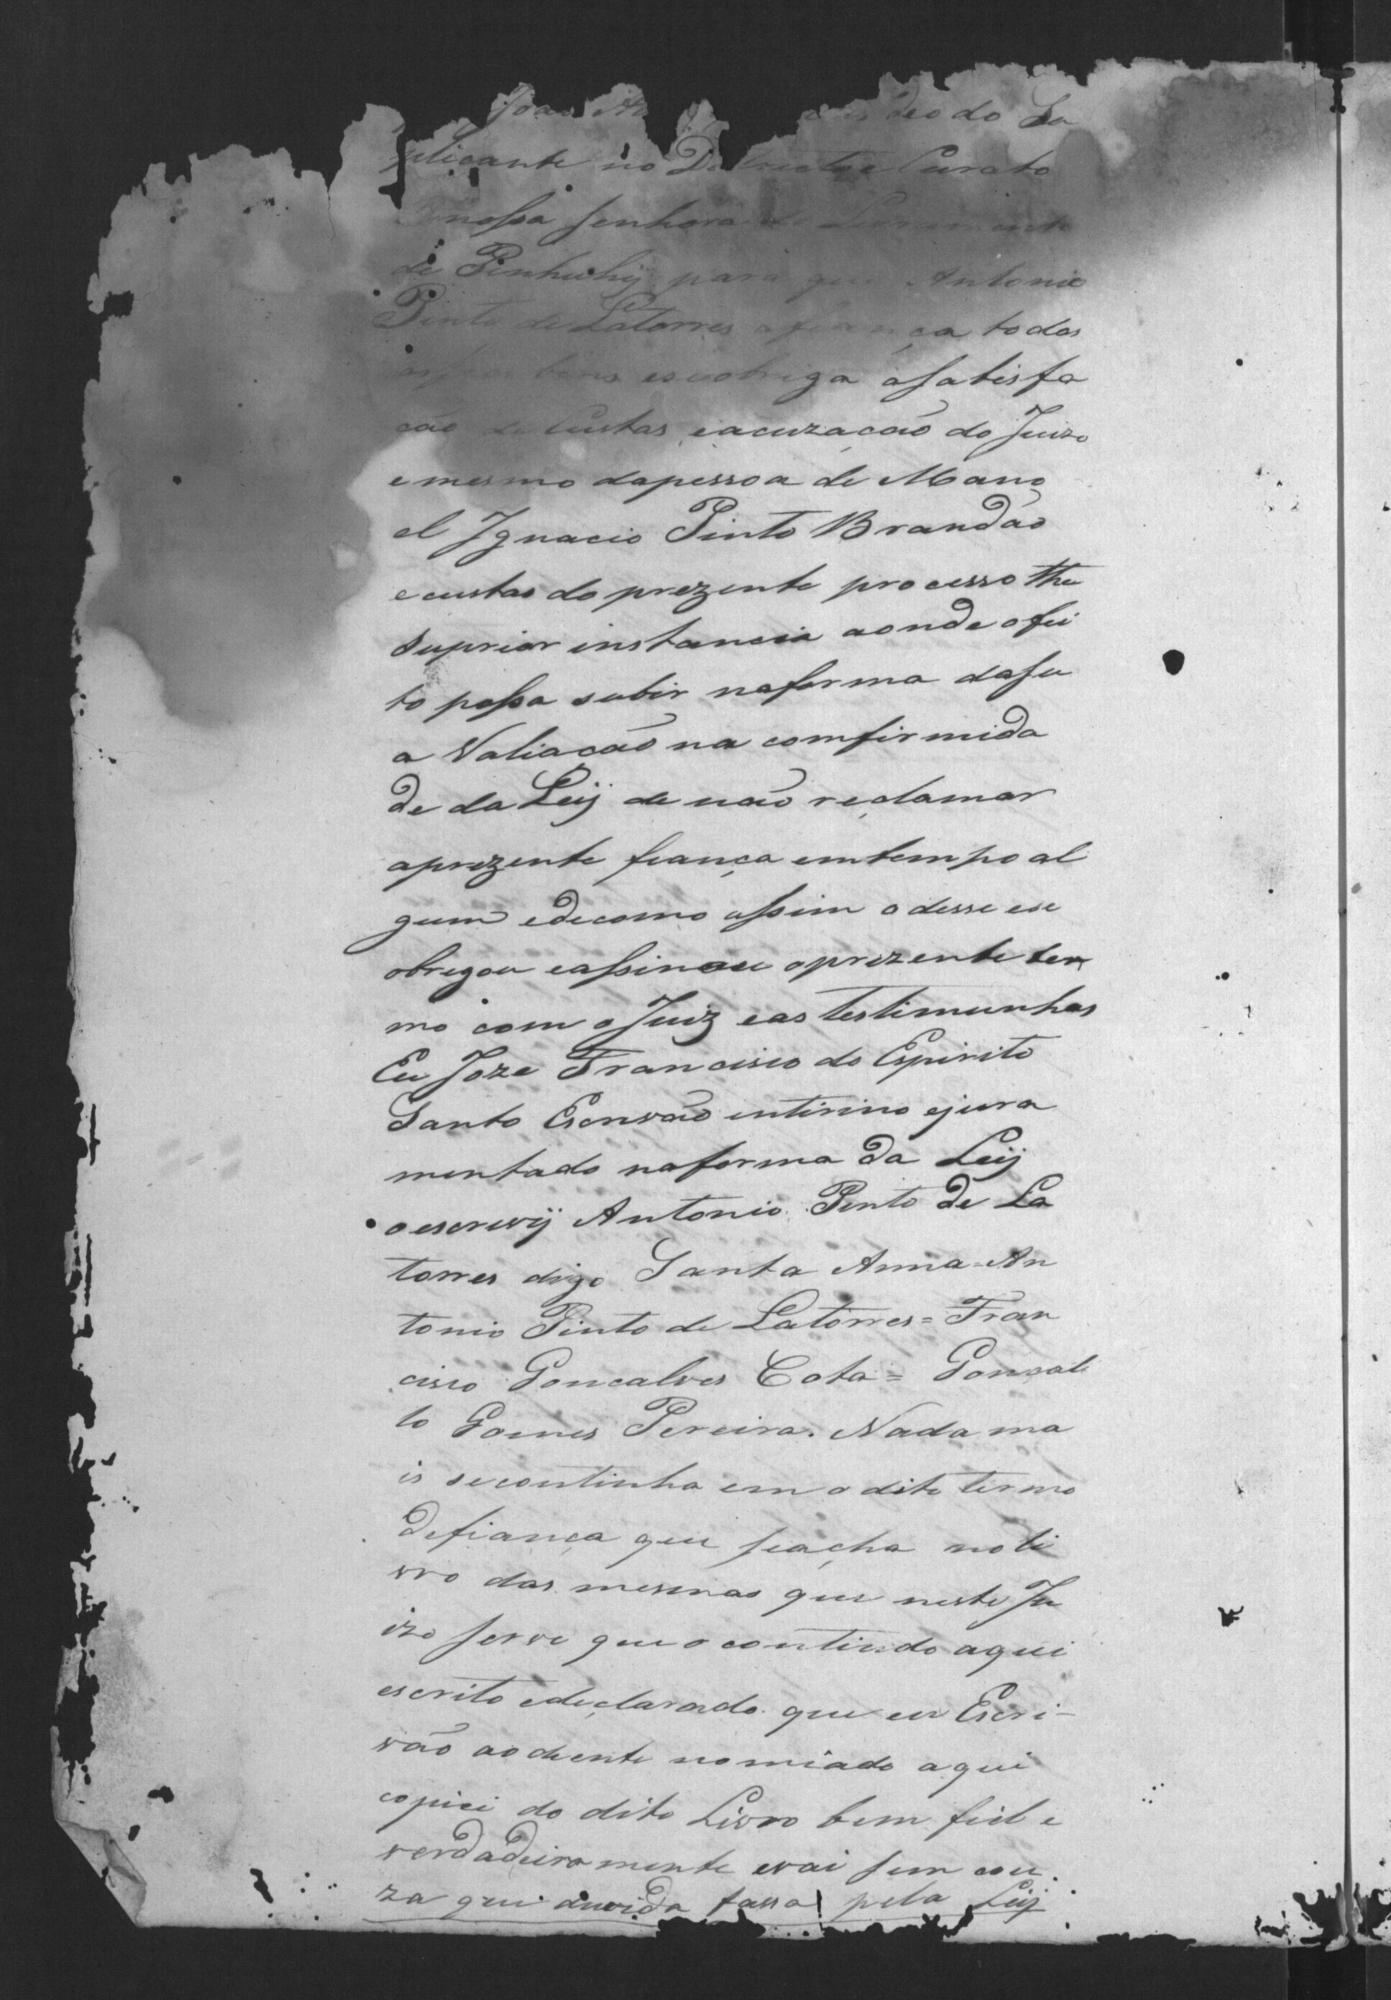 João
plicante no Destricto e Curato
nossa senhora do Livramento
de Piuhuhÿ para que Antonio
Pinto de Latorres afiança todos
os seos bens eseobriga asatisfa
cão de Custas, eacuzacaõ do Juizo
emesmo dapessoa de Mano
el Ignacio Pinto Brandão
ecustas do prezente processo the
suprior instancia aonde ofei
to possa subir naforma dasu
a Valiacaõ na comfirmida
de da Leÿ de não reclamar
aprezente feança emtempo al
gum edecomo assim odesse ese
obrigou eassinou oprezente ter
mo com o Juiz eas testimunhas
Eu Joze Francisco do Espirito
Santo Escrivaõ intirino ejura
mentado naforma da Leÿ
oescrevÿ Antonio Pinto de La
torres digo Santa Anna = An
tonio Pinto de Latorres = Fran
cisco Goncalves Cota = Gonsal
lo Gomes Pereira. Nada ma
is secontinha em o dito termo
defiança que seacha noli
vro das mesmas que neste Ju
izo serve que o contiudo aqui
escrito edeclarado que eu Escri-
vão aodiente nomiado aqui
copiei do dito Livro bem fiel e
verdadeiramente evai sem cou
za que duvida fassa pela Leÿ